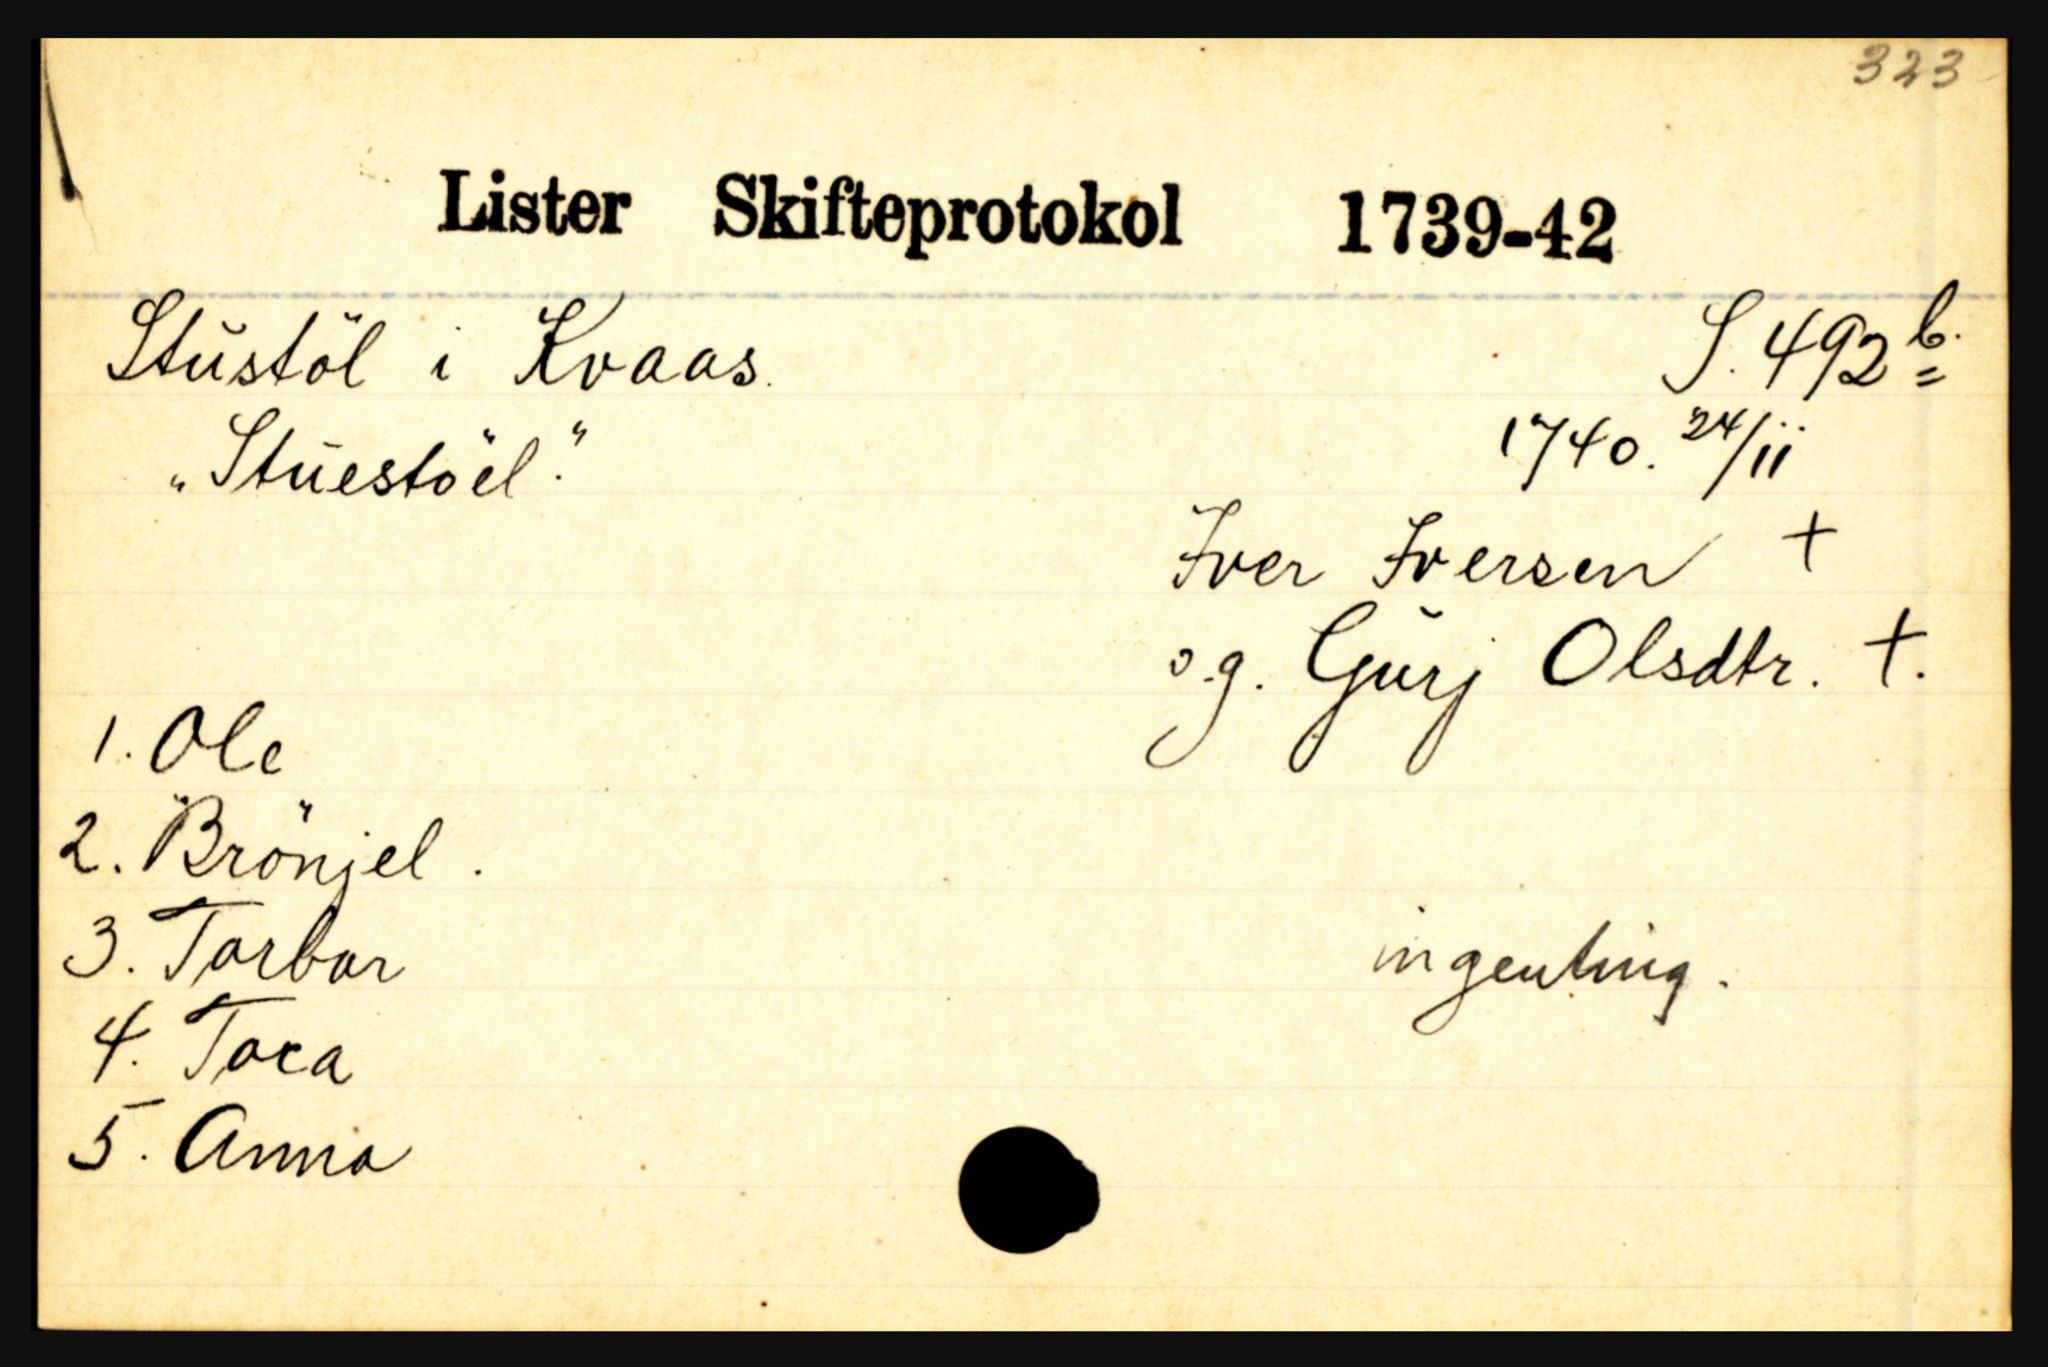 323
Lister Skifteprotokol 1739-42
Stŭstöl i Kvaas. S. 492 b.
„Stŭestöel." 1740. 24/11
Iver Iversen +
og. Gŭrj Olsdtr. +.
1. Ole
2. Brönjel.
3. Torbor
4. Tora
5. Anna
ingenting.